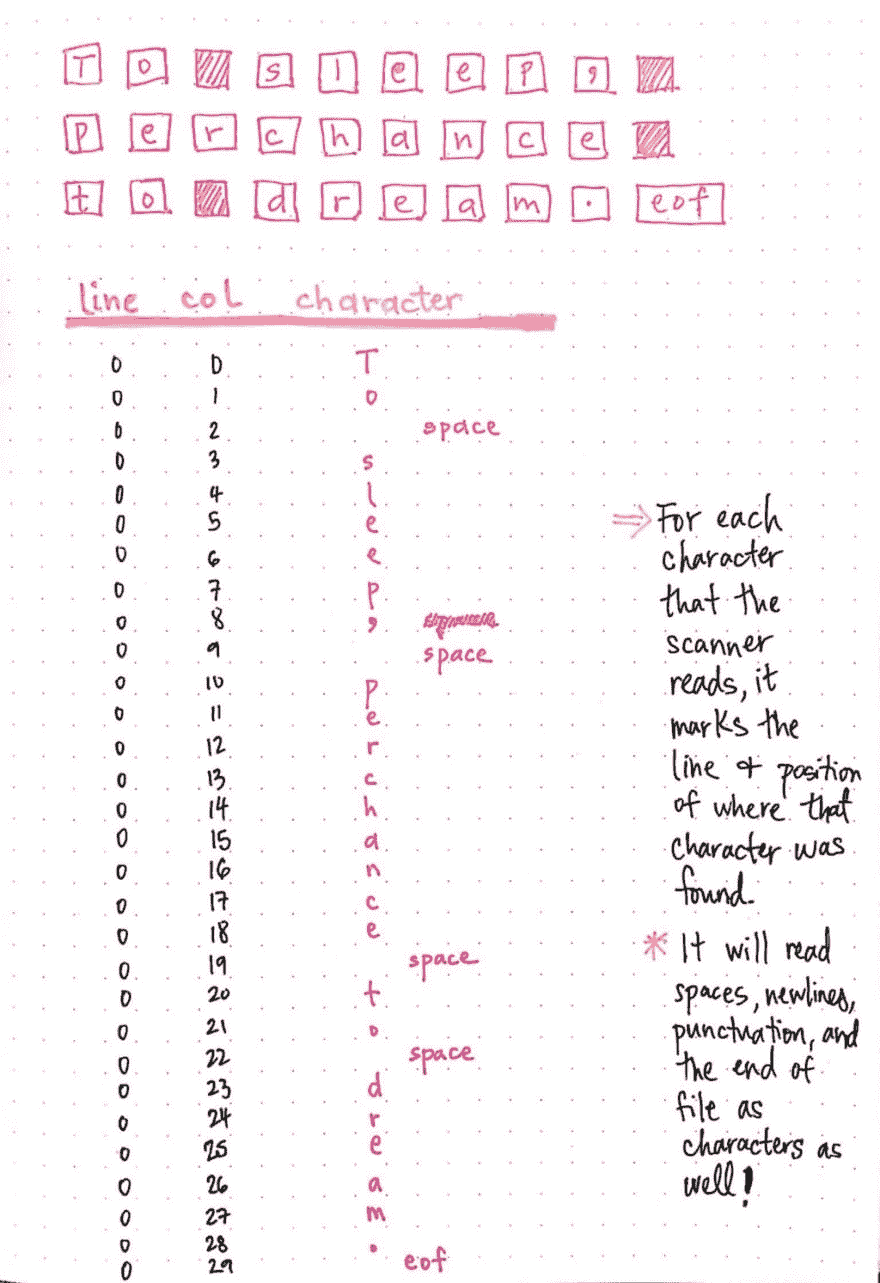 To sleep,
perchance
to dream. eof
line col character
0 0 T
0 1 o
0 2 space
0 3 s
0 4 l
0 5 e
0 6 e
0 7 p
0 8 ,
0 9 space
0 10 p
0 11 e
0 12 r
0 13 c
0 14 h
0 15 a
0 16 n
0 17 c
0 18 e
0 19 space
0 20 t
0 21 o
0 22 space
0 23 d
0 24 r
0 25 e
0 26 a
0 27 m
0 28 .
0 29 eof
⇒ For each
character
that the
scanner
reads, it
marks the
line & position
of where that
character was
found.
* It will read
spaces, newlines,
punctuation, and
the end of
file as
characters as
well!